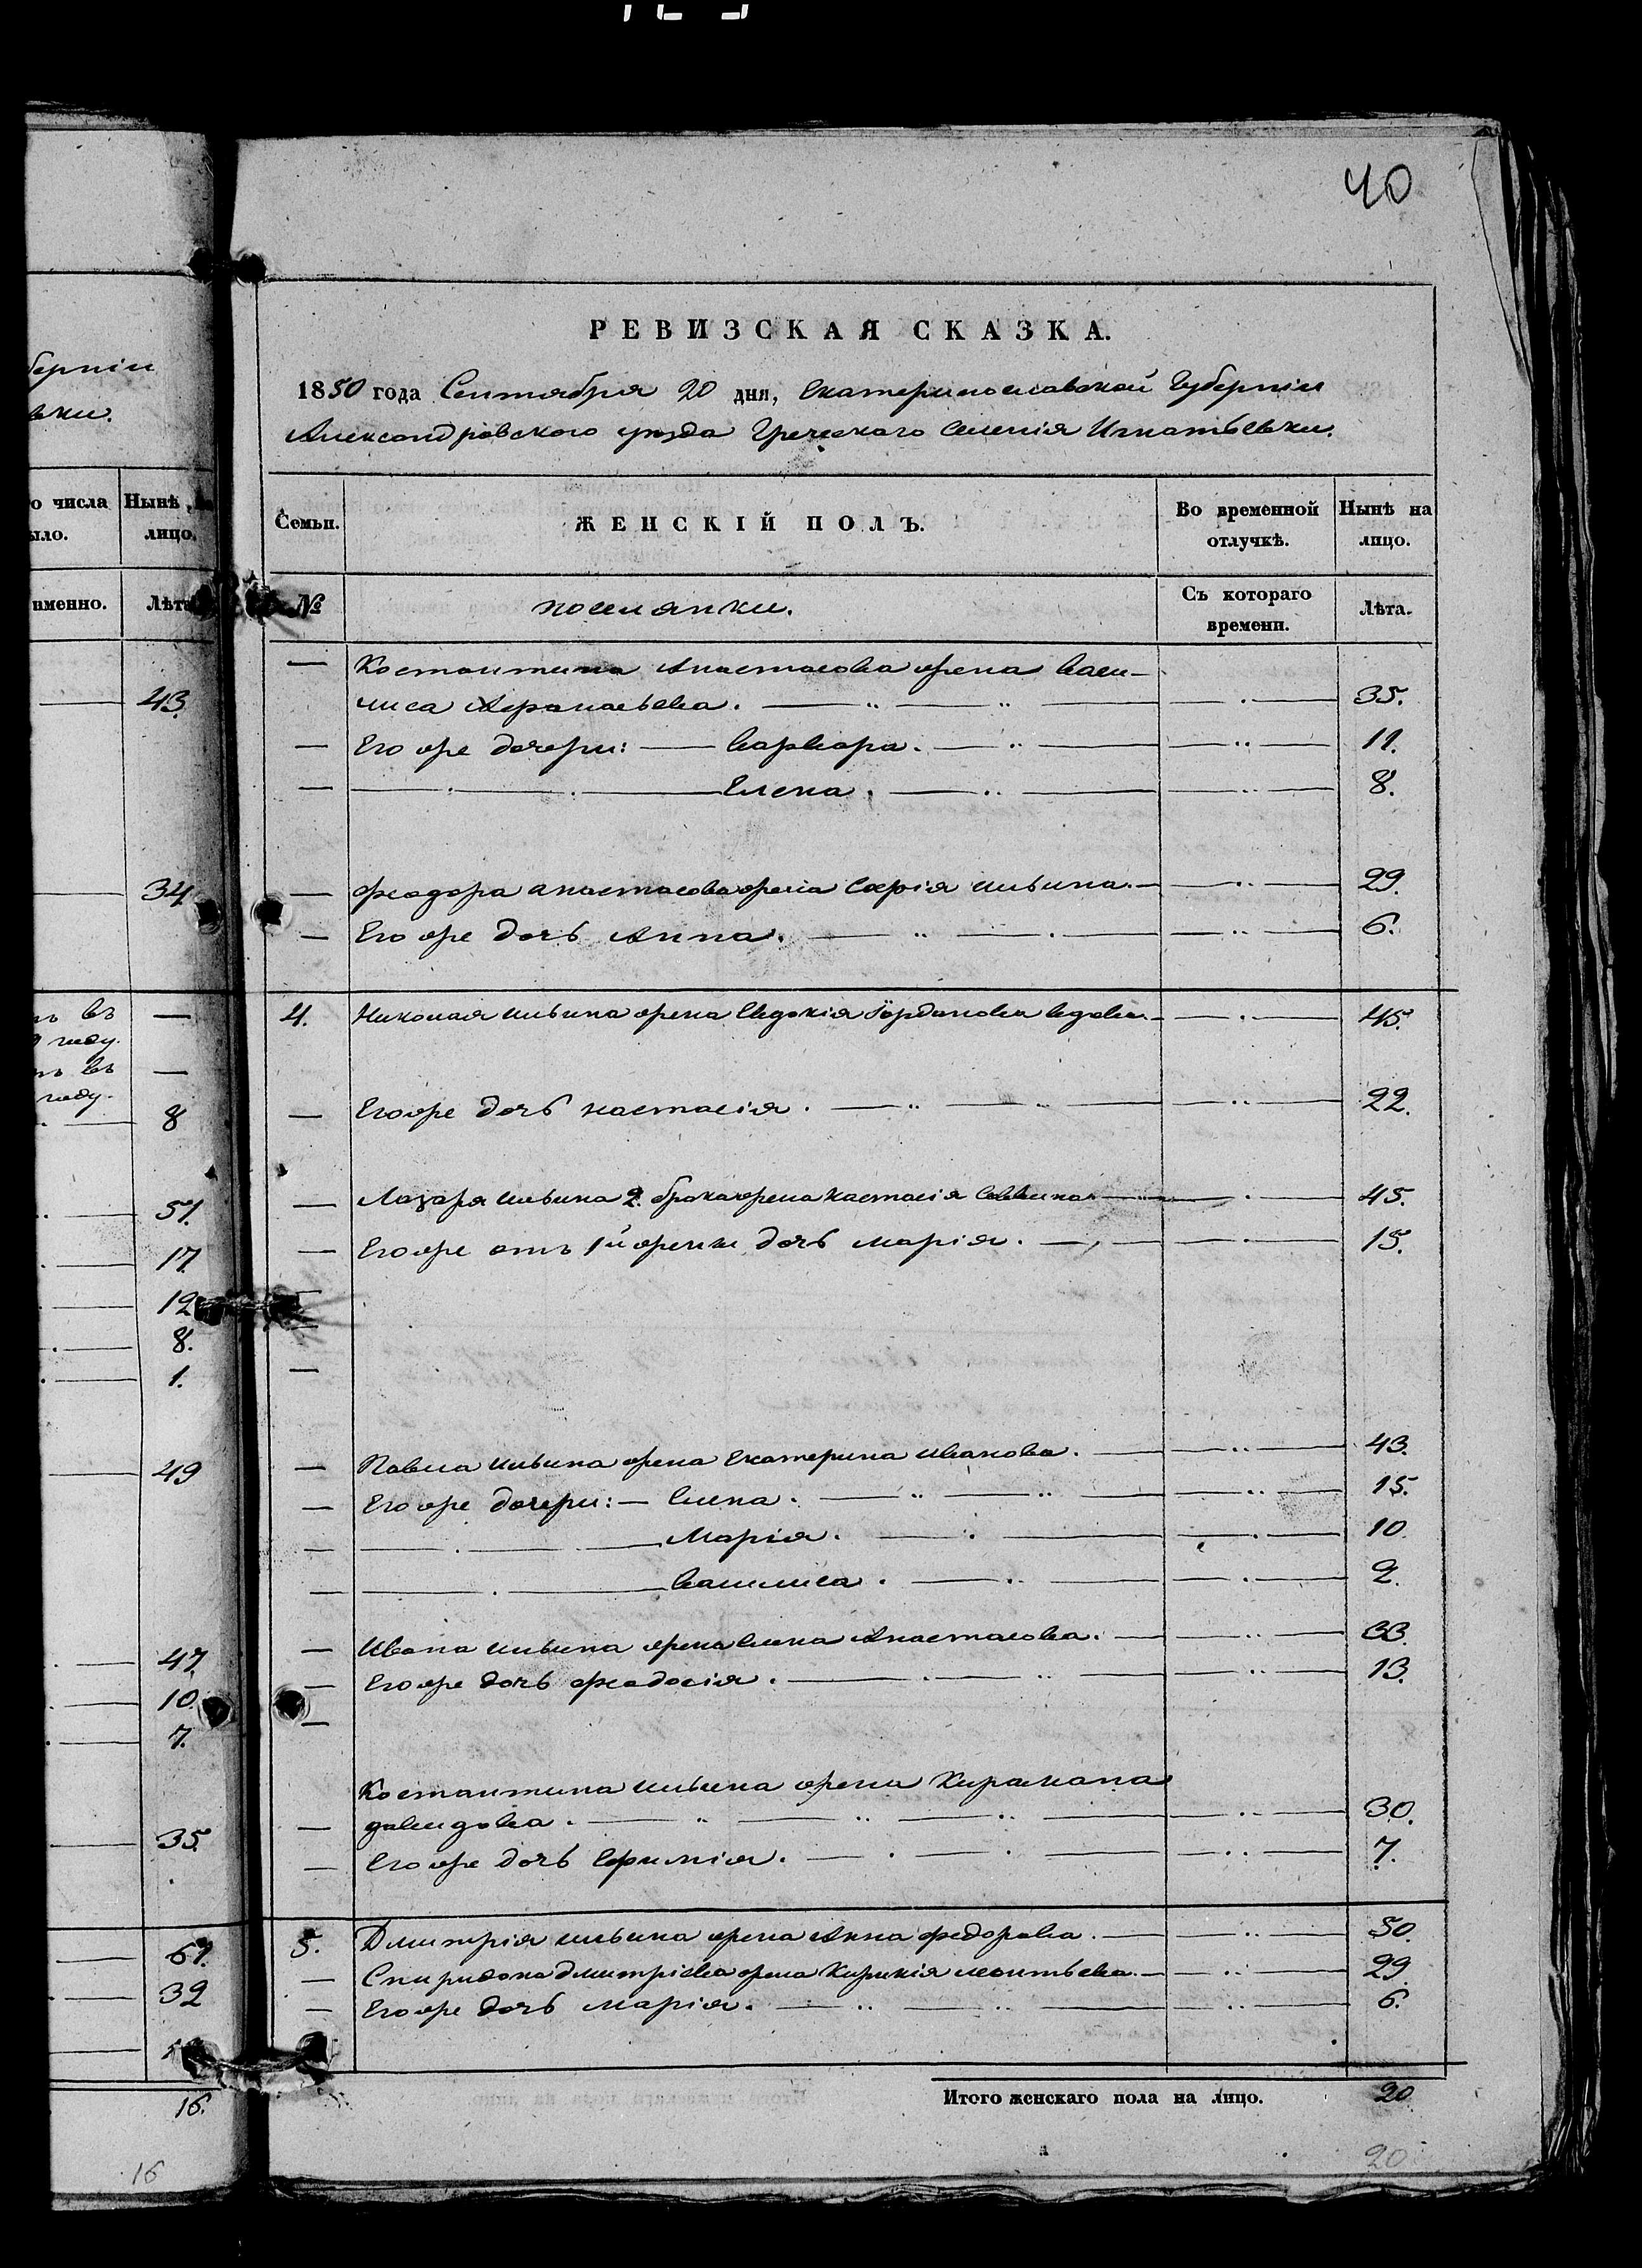 40
берніи
ьки.
о числа
Нынѣ на
ыло.
лицо.
именно.
Лѣта
43.
34
ъ въ
году.
ъ въ
году.
8
51.
17.
12
8.
1.
49
47.
10.
7.
35.
67.
32
16.
16
РЕВИЗСКАЯ СКАЗКА.
1850 года Сентября 20 дня, Екатеринославской Губерніи
Александровского уѣзда Греческого Селенія Игнатьевки.
Семьи.
ЖЕНСКІЙ ПОЛЪ.
Во временной отлучкѣ.
Нынѣ на лицо.
№
поселянки.
Съ котораго времени.
Лѣта.
Костантина Анастасова жена Васи-
лиса Афанасьева. 35.
Его же дочери: Варвара. 11.
Елена. 8.
Феодора Анастасова жена Софія Ильина. 29.
Его же дочь Анна. 6.
4. Николая Ильина жена Евдокія Іорданова вдова. 45.
Его же дочь Настасія. 22.
Лазаря Ильина 2. брака жена Настасія Саввина. 45.
Его же отъ 1й женки дочь Марія. 15.
Павла Ильина жена Екатерина Иванова. 43.
Его же дочери: Елена. 15.
Марія. 10.
Василиса. 2.
Ивана Ильина жена Елена Анастасова. 33.
Его же дочь Феодосія. 13.
Костантина Ильина жена Кирамана
Давидова. 30.
Его же дочь Ефимія. 7.
5. Дмитрія Ильина жена Анна Федорова. 50.
Спиридона Дмитріева жена Кирикія Леонтьева. 29.
Его же дочь Марія. 6.
Итого женскаго пола на лицо. 20
20